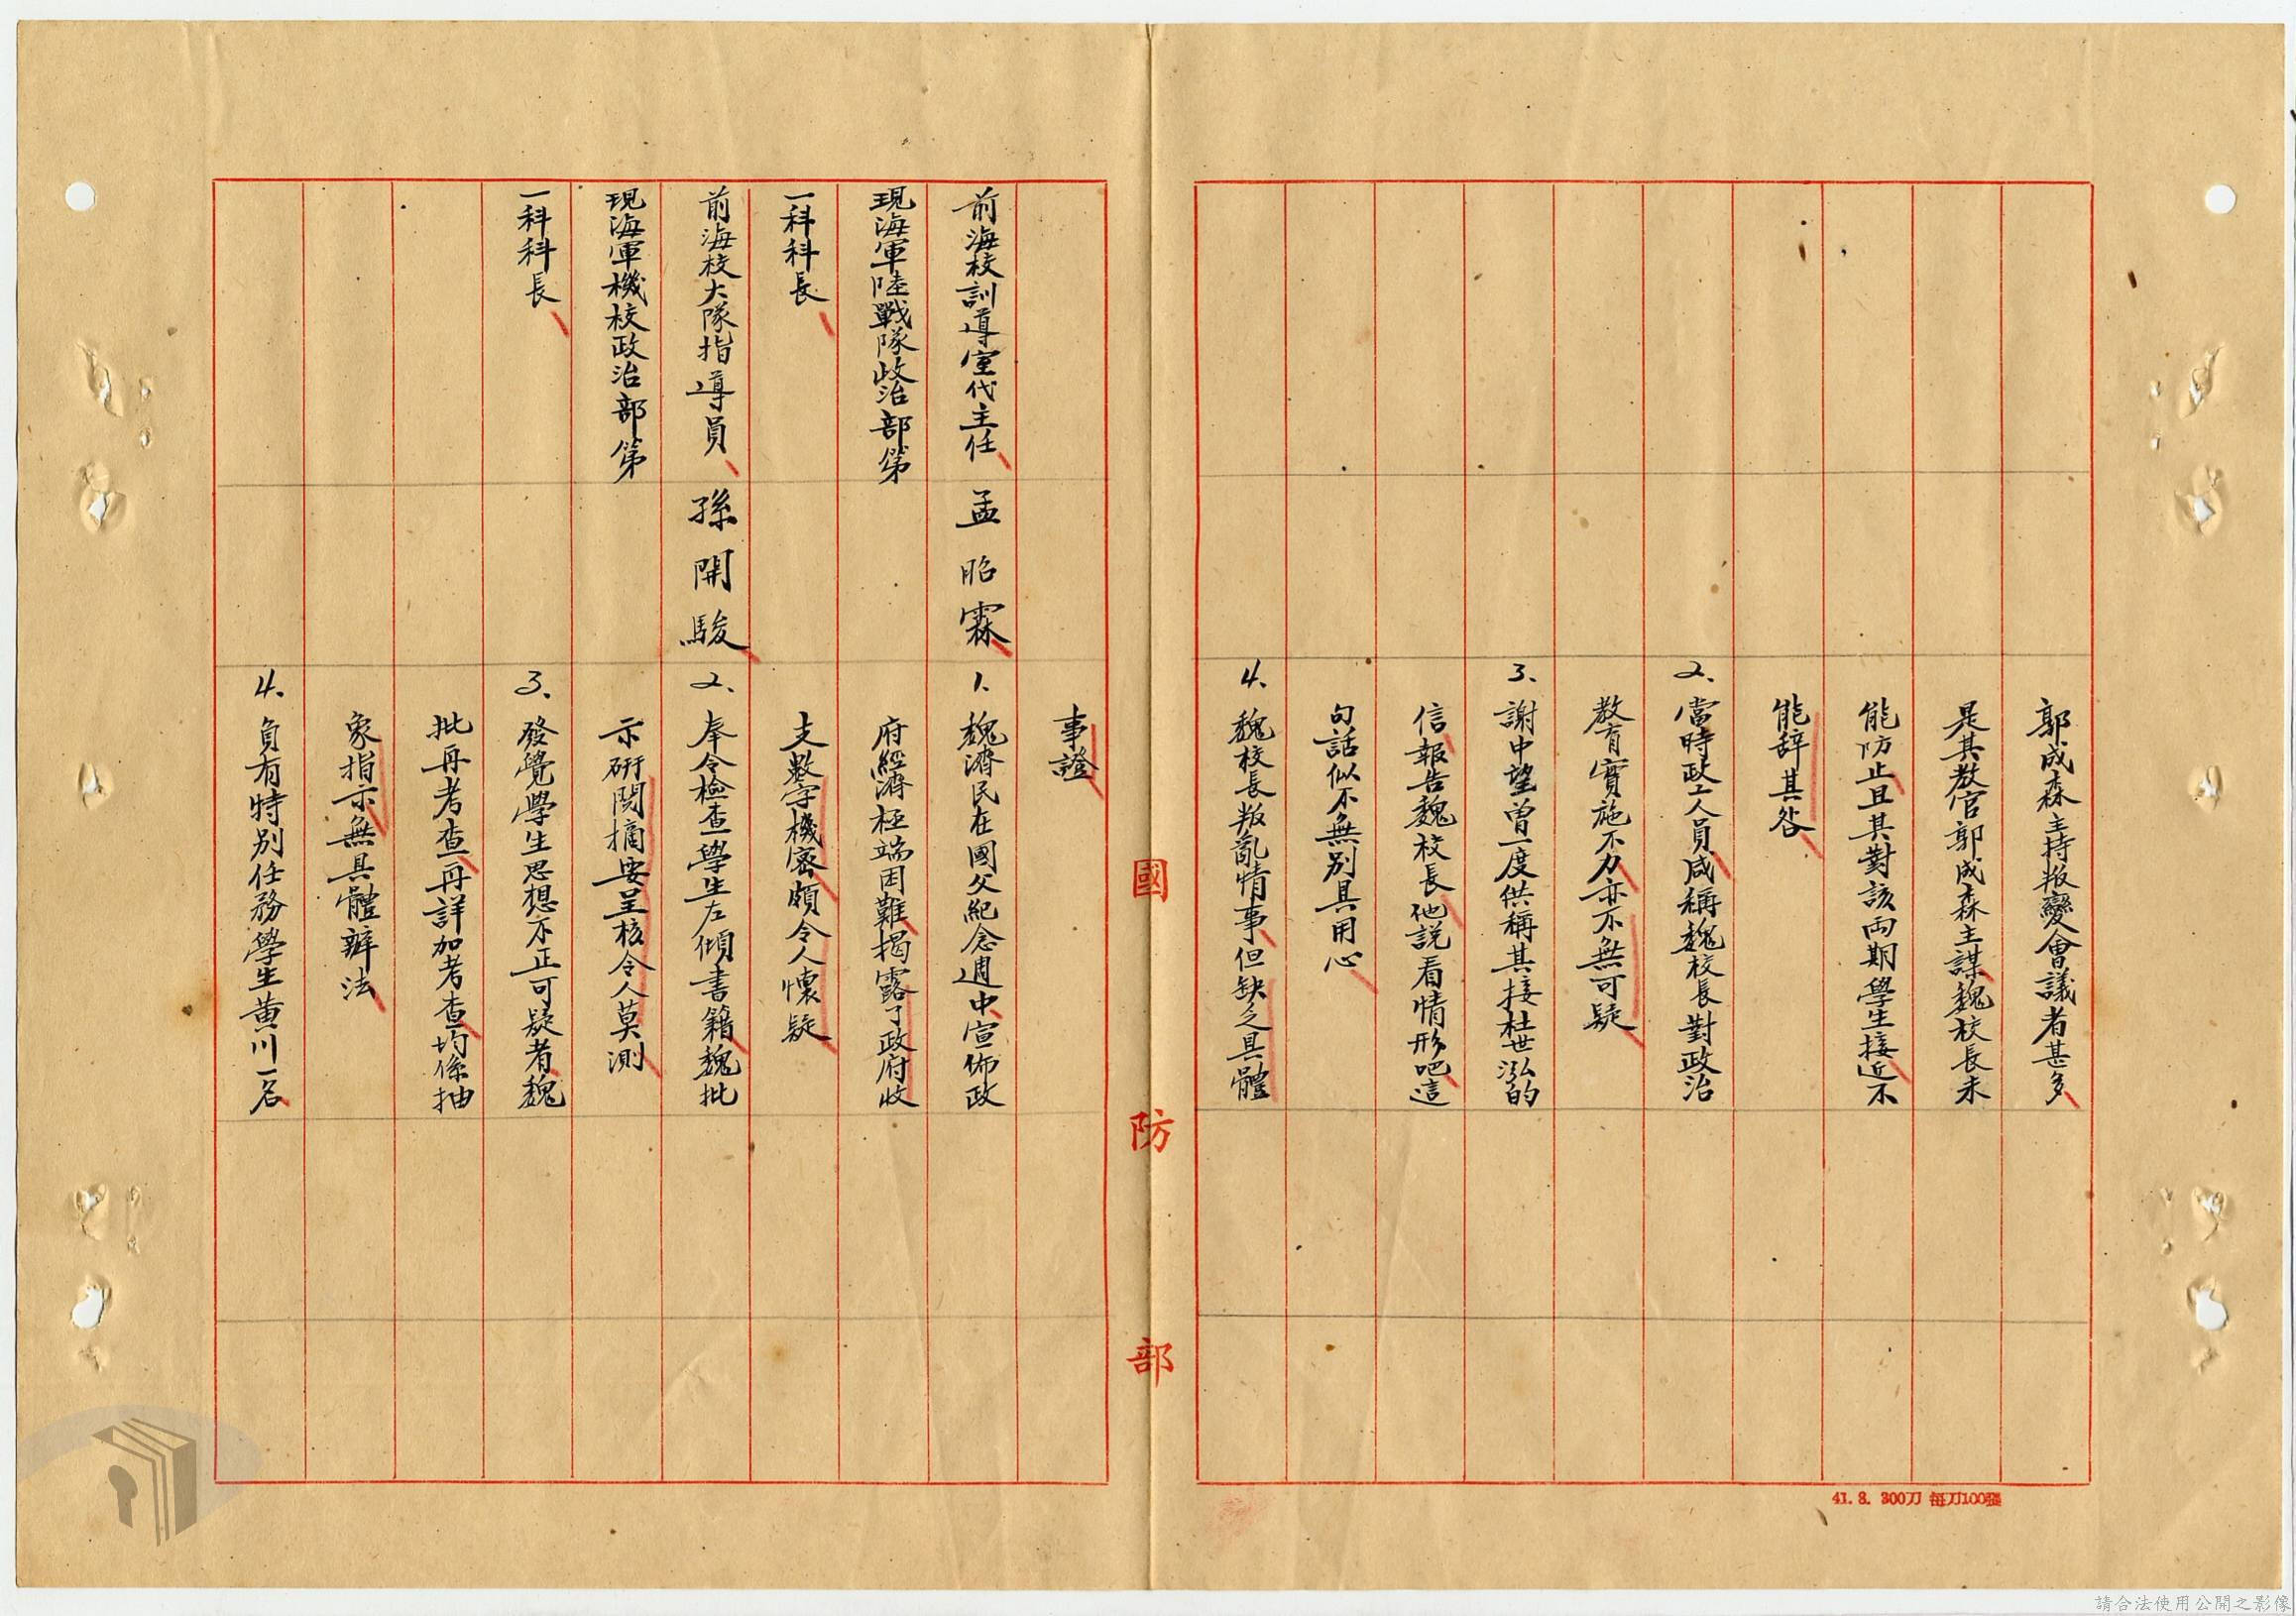 郭成森主持叛變會議者甚多
是其教官郭成森主謀魏校長未
能防止且其對該両期學生接近不
能辞其咎
2、當時政工人員咸稱魏校長對政治
教育實施不力亦不無可疑
3、謝中望曾一度供稱其接杜世泓的
信報告魏校長他說看情形吧這
句話似不無別具用心
4、魏校長叛亂情事但缺乏具體
國防部
事證
前海校訓導室代主任 孟昭霖 1、魏濟民在國父紀念週中宣佈政
現海軍陸戰隊政治部第 府經濟極端困難揭露了政府收
一科科長 支數字機密頗令人懷疑
前海校大隊指導員 孫開駿 2、奉令檢查學生左傾書籍魏批
現海軍機校政治部第 示研閱摘要呈核令人莫測
一科科長 3、發覺學生思想不正可疑者魏
批再考查再詳加考查均係抽
象指示無具體辦法
4、負有特別任務學生黃川一名
41.8. 300刀 每刀100張
請合法使用公開之影像